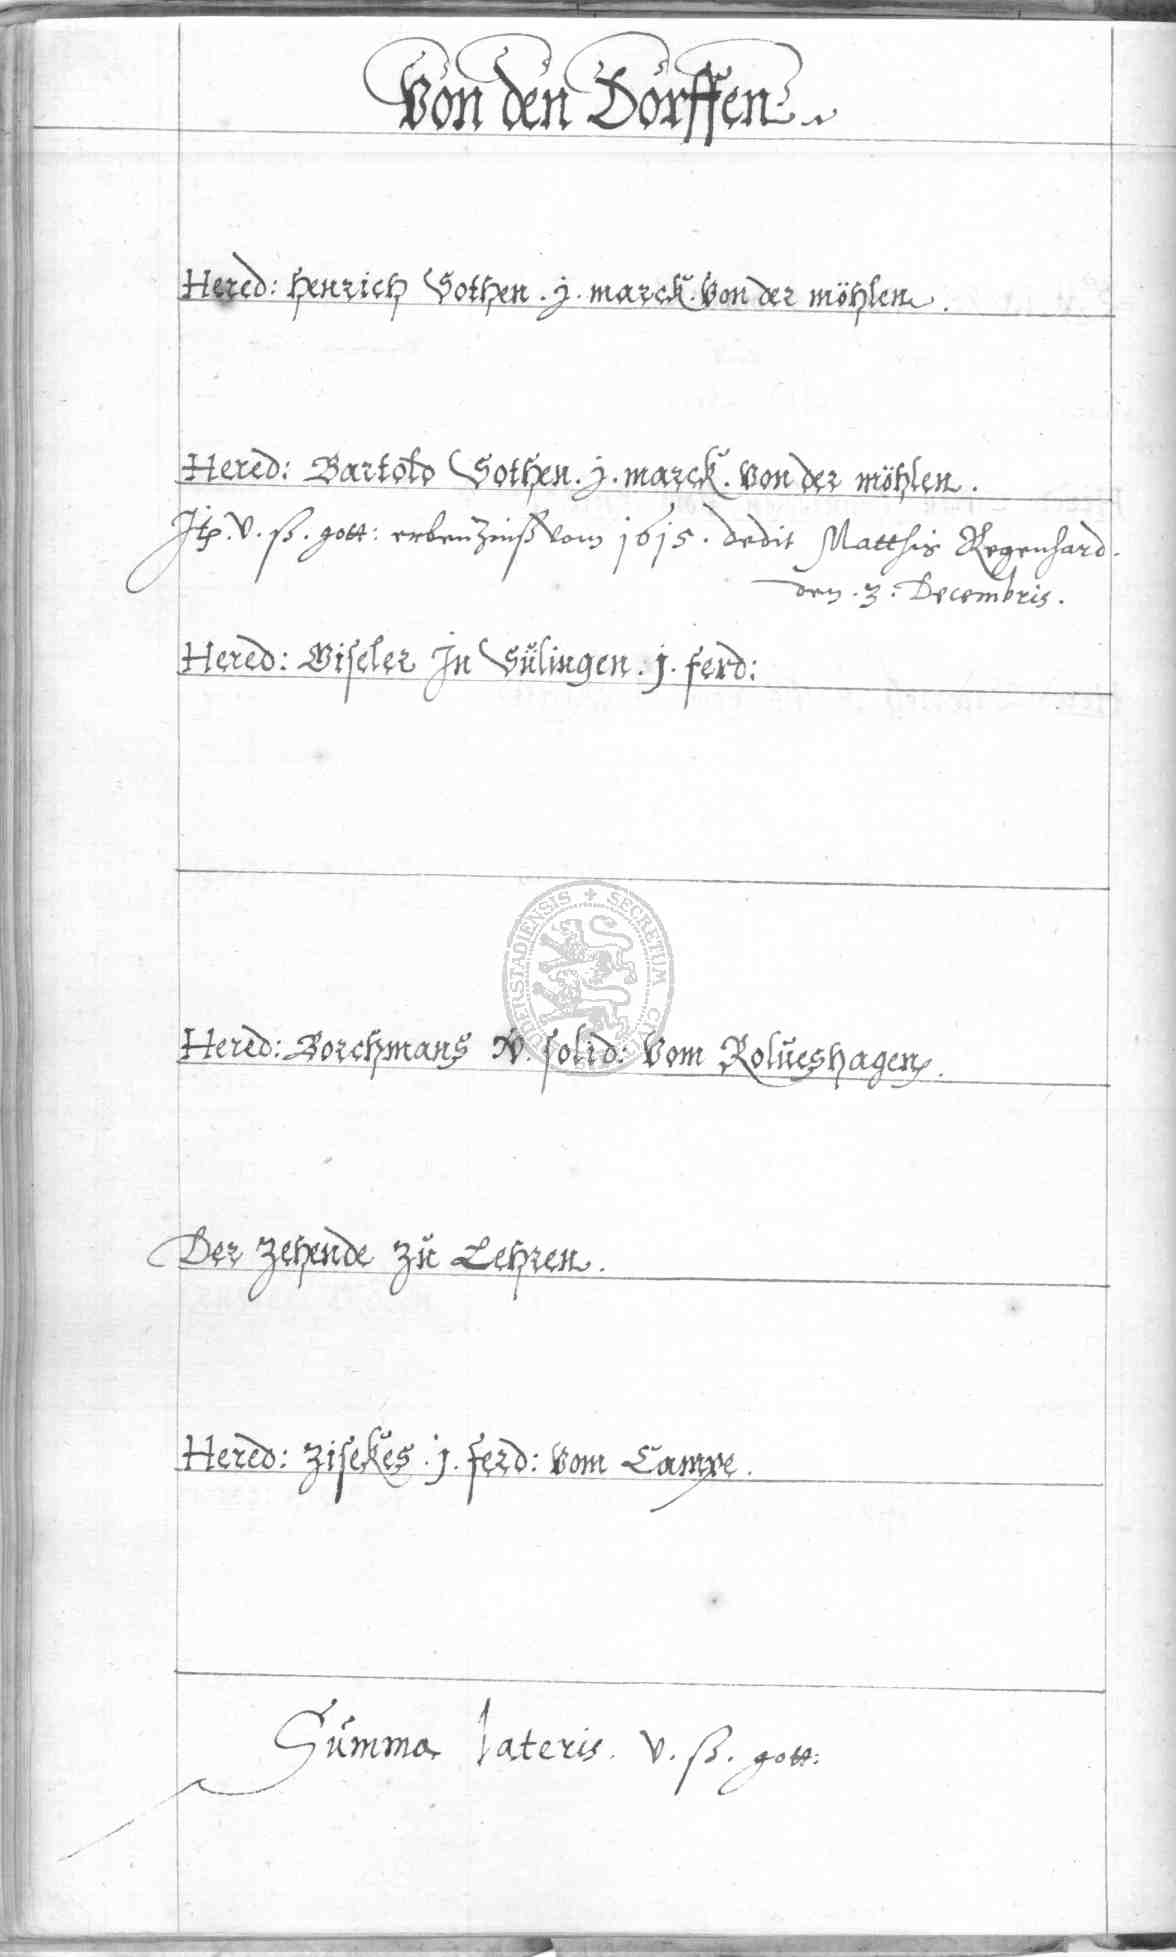 Von den Dörffen
Hered: Henrich Sothen . j . marck . Von der möhlen .
Hered: Bartold Sothen . j . marck . Von der möhlen .
Itp . V . ß . gott : erbenzinß vom 1615 . dedit Matthis Regenhard .
den . 3 : Decembris .
Hered: Giseler In Sülingen . j . ferd :
DUDERSTADIENSIS + SECRETUM CIVI
Hered: Borchmans XV . solid : Vom Rolüeshagen .
Der zehende zü Lehren .
Hered: Zisekes . j . ferd : Vom Campe .
Summa lateris . V . ß . gott :